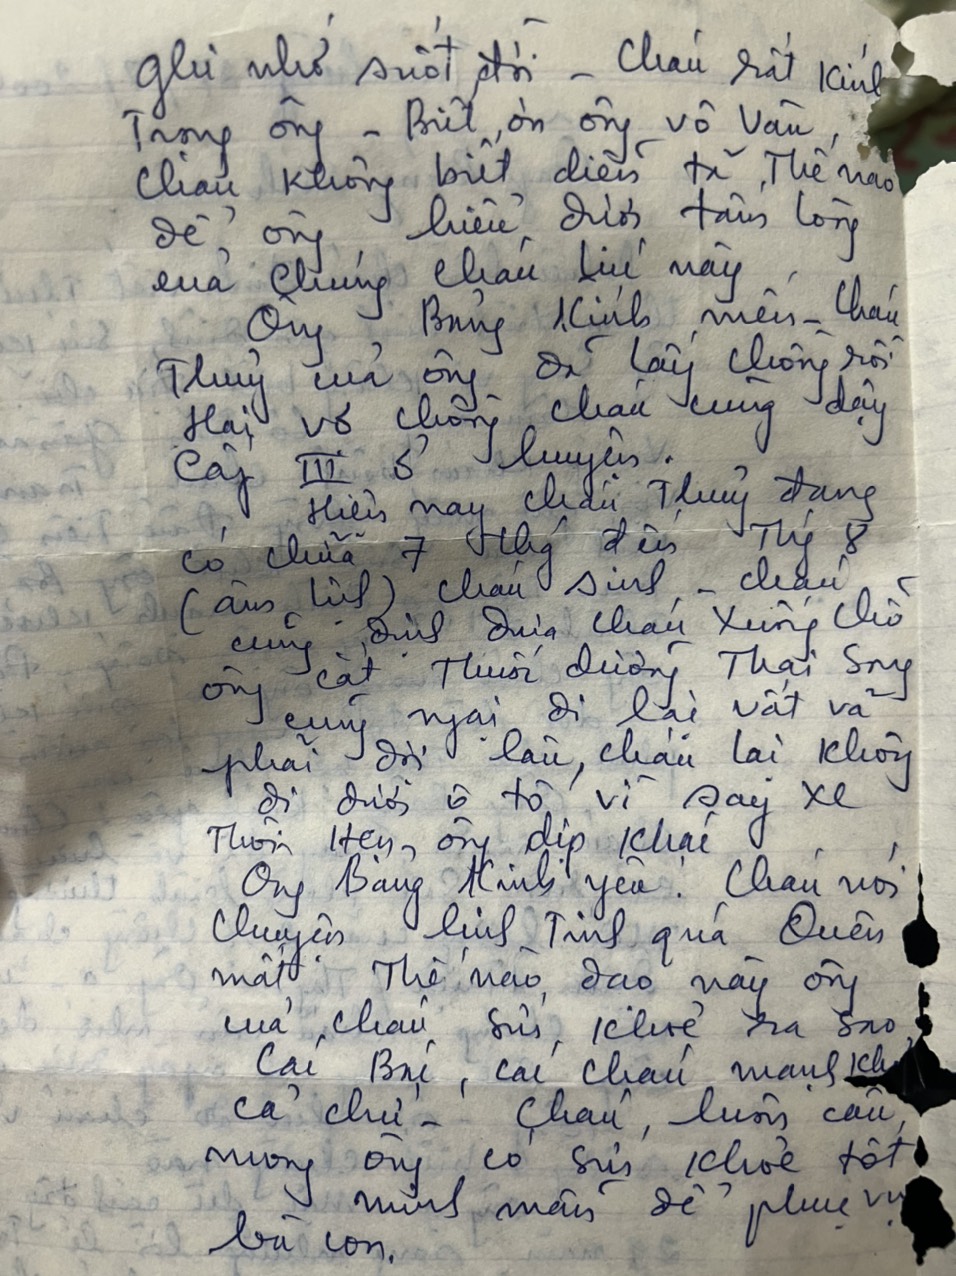 ghi nhớ suốt đời - Cháu rất Kính
Trọng ông - Biết ơn ông vô vàn,
Cháu không biết diễn tả Thế nào
để ông hiểu được tấm lòng
của Chúng cháu lúc này.
Ông Bảng Kính mến - Cháu
Thuỷ của ông đã lấy chồng rồi
Hai vợ chồng cháu cùng dậy
Cấp III ở huyện.
Hiện nay cháu Thuỷ đang
có chửa 7 thg đến Thg 8
(âm lịch) cháu sinh - cháu
cũng định đưa cháu Xuống chỗ
ông cắt Thuốc dưỡng Thai Song
cũng ngại đi lại vất vả
phải đợi lâu, cháu lại không
đi được ô tô vì say xe
Thôi Hẹn ông dịp khác
Ông Bảng Kính yêu! Cháu nói
chuyện linh Tinh quá Quên
mất. Thế nào, dạo này ông
của cháu sức khoẻ ra sao
Các Bác, các cháu mạnh khoẻ
cả chứ - Cháu luôn cầu
mong ông có sức khoẻ tốt
minh mẫn để phục vụ
bà con.